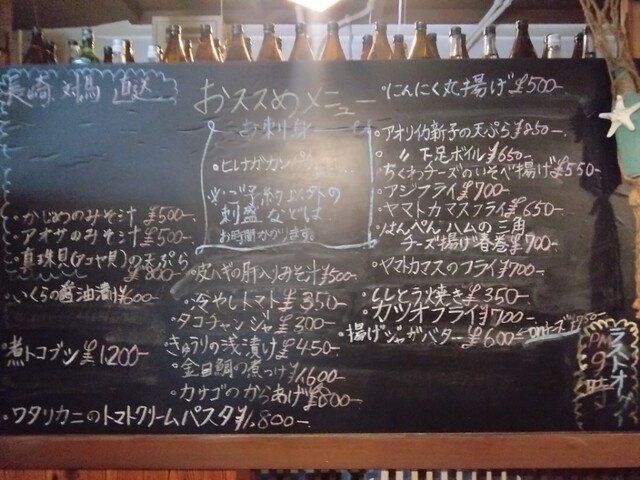 長崎 対馬 直送
おススメメニュー
お刺身
・ヒレナガカンパチ
※ご予約以外の
刺盛などは
お時間かかります。
・かじめのみそ汁 ¥500-
・アオサのみそ汁 ¥500-
・真珠貝(アコヤ貝)の天ぷら
¥800-
・いくらの醤油漬け ¥600-
・煮トコブシ ¥1200-
・ワタリカニのトマトクリームパスタ ¥1,800-
・皮ハギの肝入りみそ汁 ¥500-
・冷やしトマト ¥350-
・タコチャンジャ ¥300-
・きゅうりの浅漬け ¥450-
・金目鯛の煮つけ ¥1,600-
・カサゴのからあげ ¥800-
・にんにく丸揚げ ¥500-
・アオリイカ新子の天ぷら ¥850-
・〃 下足ボイル ¥650-
・ちくわチーズのいそべ揚げ ¥550
・アジフライ ¥700-
・ヤマトカマスフライ ¥650-
・はんぺんハムの三角
チーズ揚げ春巻 ¥700-
・ヤマトカマスのフライ ¥700-
・ししとう焼き ¥350-
・カツオフライ ¥700-
・揚げジャガバター ¥600-
ラストオーダー
PM9時